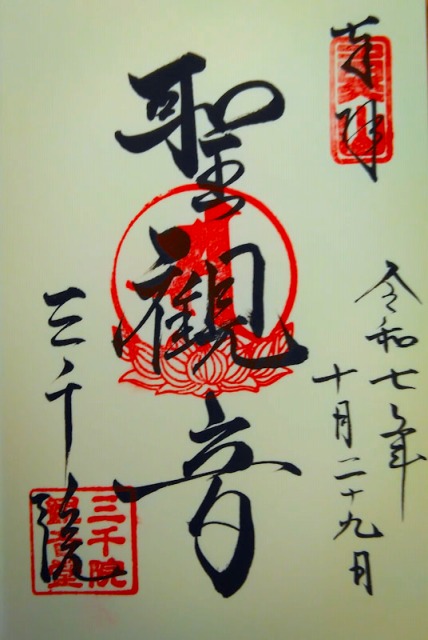 奉拝
令和七年
十月二十九日
聖觀音
三千院
三千院